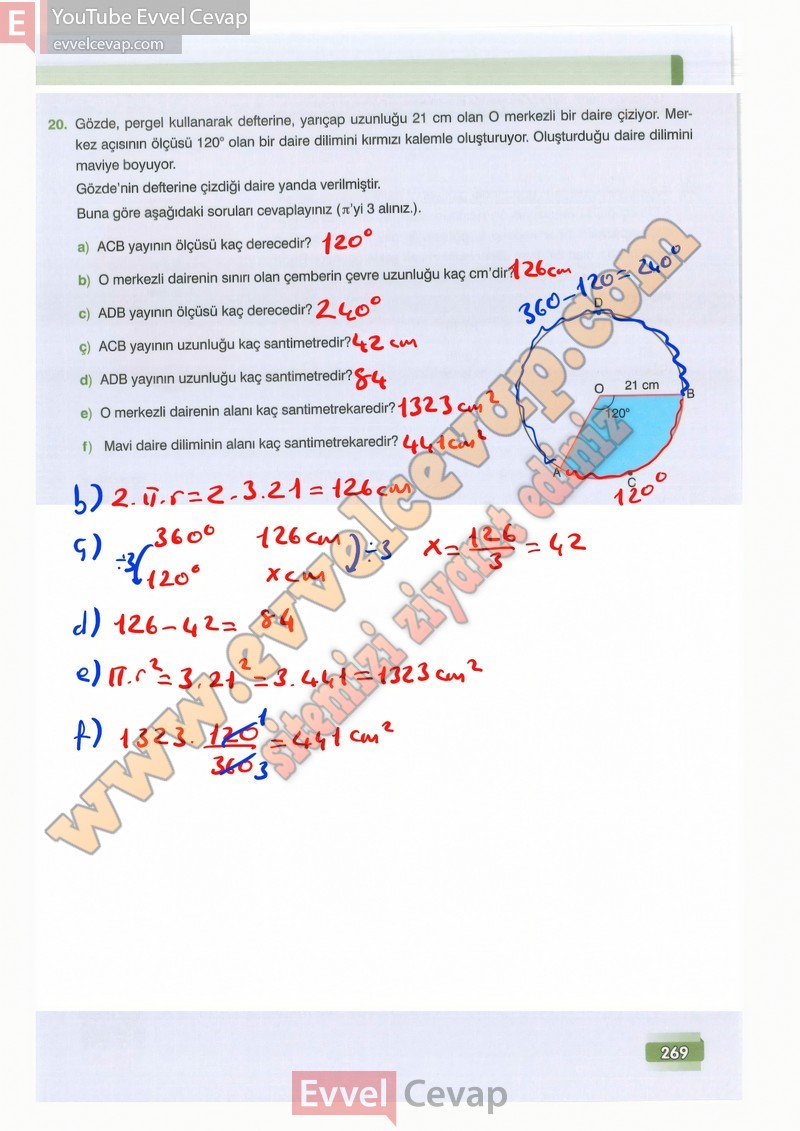 E YouTube Evvel Cevap
evvelcevap.com
20. Gözde, pergel kullanarak defterine, yarıçap uzunluğu 21 cm olan O merkezli bir daire çiziyor. Mer-
kez açısının ölçüsü 120° olan bir daire dilimini kırmızı kalemle oluşturuyor. Oluşturduğu daire dilimini
maviye boyuyor.
Gözde'nin defterine çizdiği daire yanda verilmiştir.
Buna göre aşağıdaki soruları cevaplayınız (π'yi 3 alınız.).
a) ACB yayının ölçüsü kaç derecedir? 120°
b) O merkezli dairenin sınırı olan çemberin çevre uzunluğu kaç cm'dir? 126 cm
c) ADB yayının ölçüsü kaç derecedir? 240°
ç) ACB yayının uzunluğu kaç santimetredir? 42 cm
d) ADB yayının uzunluğu kaç santimetredir? 84
e) O merkezli dairenin alanı kaç santimetrekaredir? 1323 cm²
f) Mavi daire diliminin alanı kaç santimetrekaredir? 441 cm²
360-120=240°
D
O 21 cm
B
120°
A
C
120°
b) 2.π.r=2.3.21=126cm
ç) 360° 126cm
÷3 ÷3 x=126/3=42
120° x cm
d) 126-42= 84
e) π.r²=3.21²=3.441=1323 cm²
f) 1323.120/360=441 cm²
1
3
www.evvelcevap.com
sitemizi ziyaret ediniz
269
Evvel Cevap